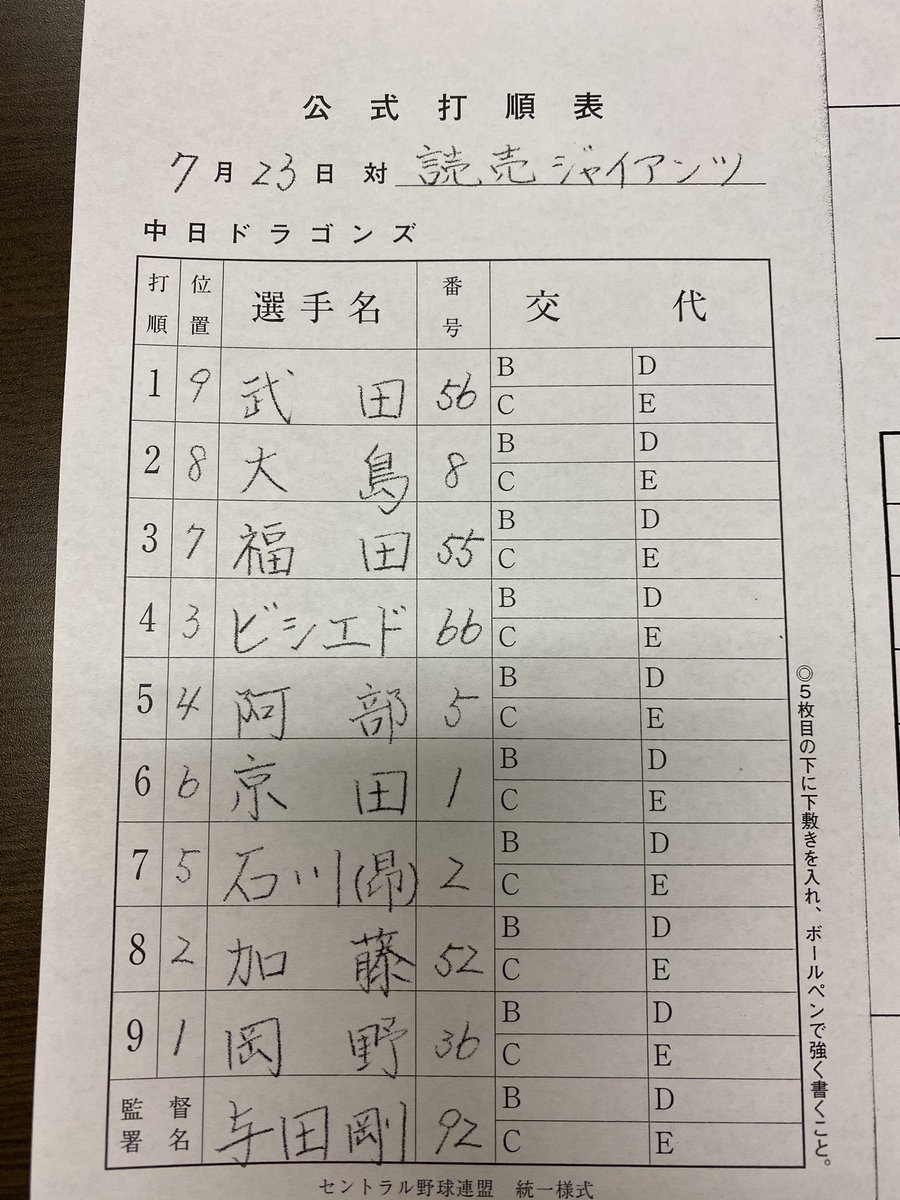 公式打順表
7月23日 対 読売ジャイアンツ
中日ドラゴンズ
打順 位置 選手名 番号 交代
1 9 武田 56 B D
C E
2 8 大島 8 B D
C E
3 7 福田 55 B D
C E
4 3 ビシエド 66 B D
C E
5 4 阿部 5 B D
C E
6 6 京田 1 B D
C E
7 5 石川(昂) 2 B D
C E
8 2 加藤 52 B D
C E
9 1 岡野 36 B D
C E
監督署名 与田剛 92 B D
C E
セントラル野球連盟 統一様式
◎5枚目の下に下敷きを入れ、ボールペンで強く書くこと。